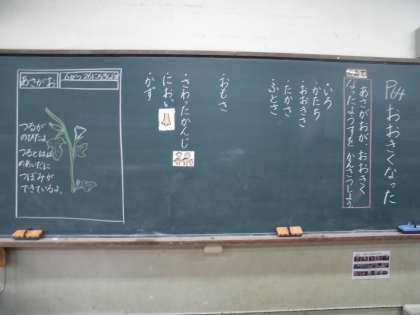 P64 おおきくなった
あさがおが、おおきく
なったようすを かんさつしよう
・いろ
・かたち
・おおきさ
・たかさ
・ふとさ
おもさ
・さわったかんじ
・におい
・かず
あさがお
つるが
のびたよ。
つるとはの
あいだに
つぼみが
できているよ。